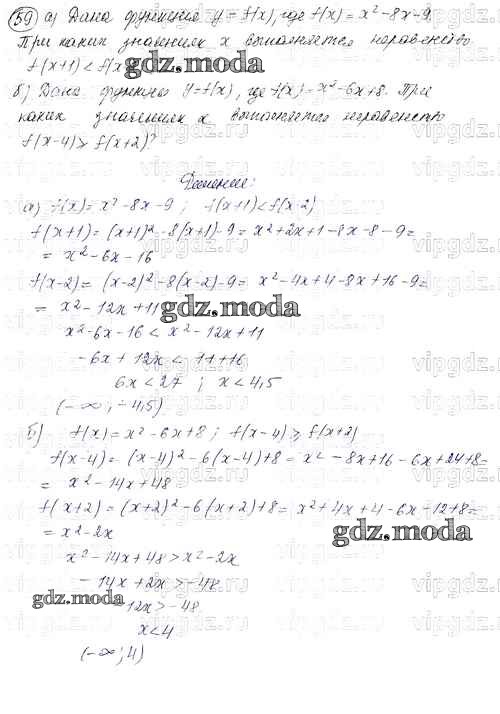 59) а) Дана функция y = f(x), где f(x) = x² - 8x - 9.
При каких значениях x выполняется неравенство
f(x+1) < f(x
gdz.moda
б) Дана функция y = f(x), где f(x) = x² - 6x + 8. При
каких значениях x выполняется неравенство
f(x-4) ≥ f(x+2)?
Решение:
а) f(x) = x² - 8x - 9 ; f(x+1) < f(x-2)
f(x+1) = (x+1)² - 8(x+1) - 9 = x² + 2x + 1 - 8x - 8 - 9 =
= x² - 6x - 16
f(x-2) = (x-2)² - 8(x-2) - 9 = x² - 4x + 4 - 8x + 16 - 9 =
= x² - 12x + 11
gdz.moda
x² - 6x - 16 < x² - 12x + 11
- 6x + 12x < 11 + 16
6x < 27 ; x < 4,5
(-∞; -4,5)
б) f(x) = x² - 6x + 8 ; f(x-4) ≥ f(x+2)
f(x-4) = (x-4)² - 6(x-4) + 8 = x² - 8x + 16 - 6x + 24 + 8 =
= x² - 14x + 48
f(x+2) = (x+2)² - 6(x+2) + 8 = x² + 4x + 4 - 6x - 12 + 8 =
= x² - 2x
gdz.moda
x² - 14x + 48 > x² - 2x
- 14x + 2x > -48
gdz.moda
12x > -48
x < 4
(-∞; 4)